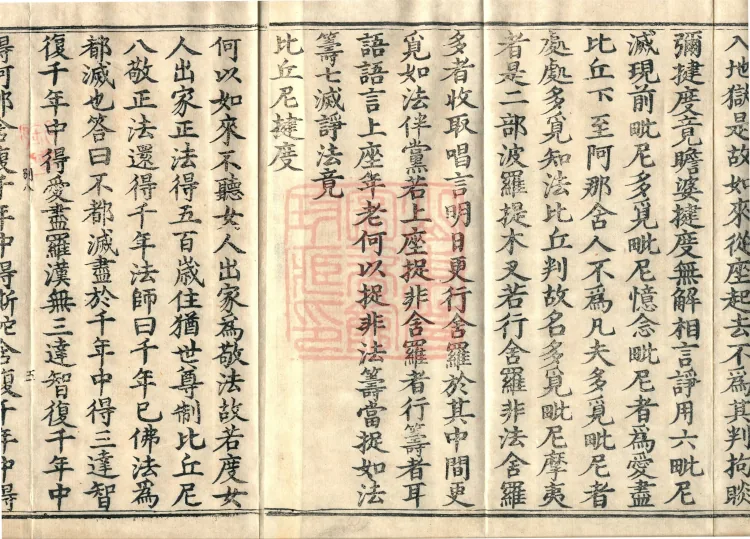 入地獄是故如來從座起去不爲其判拘睒
彌揵度竟瞻婆揵度無解相言諍用六毗尼
滅現前毗尼多覓毗尼憶念毗尼者爲愛盡
比丘下至阿那舍人不爲凡夫多覓毗尼者
處處多覓知法比丘判故名多覓毗尼摩夷
者是二部波羅提木叉若行舍羅非法舍羅
多者收取唱言明日更行舍羅於其中間更
覓如法伴黨若上座捉非舍羅者行籌者耳
語語言上座年老何以捉非法籌當捉如法
籌七滅諍法竟
比丘尼揵度
何以如來不聽女人出家爲敬法故若度女
人出家正法得五百歲住猶世尊制比丘尼
八敬正法還得千年法師曰千年已佛法爲
都滅也答曰不都滅盡於千年中得三達智
復千年中得愛盡羅漢無三達智復千年中
得阿那舍復千年中得斯陀舍復千年中得